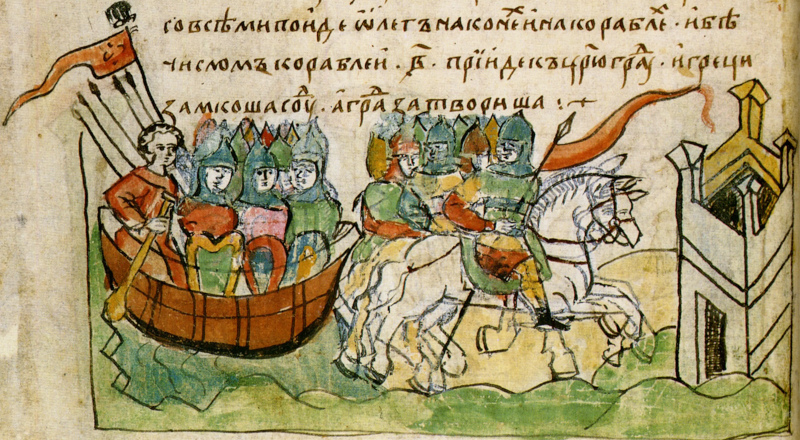 со всѣми поиде ѡлегъ на конеⷯ и на кораблеⷯ · и бѣ
числомъ кораблей · в҃ · прїиде къ цр҃югра · и греци
замкоша соуⷣ · а граⷣ затвориша :